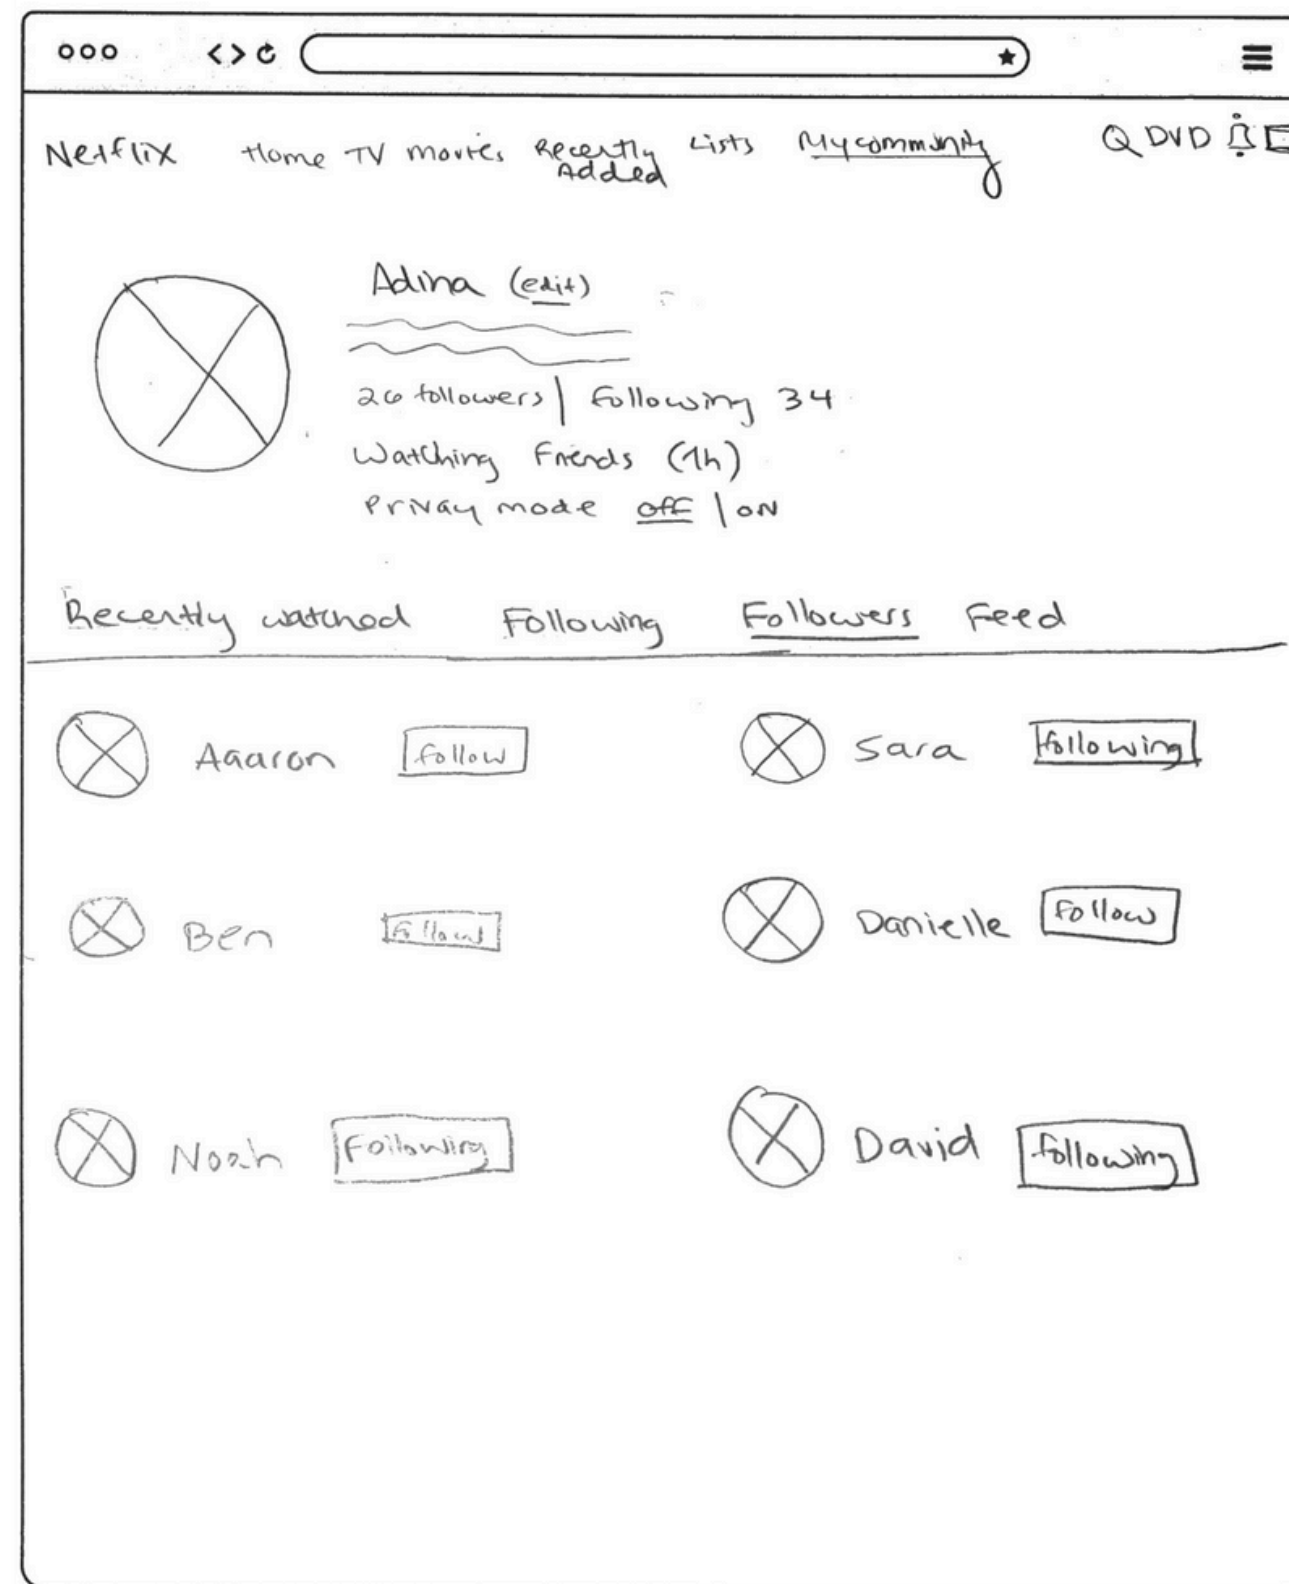 Netflix Home TV movies Recently Added Lists My community DVD
Adina (edit)
26 followers | Following 34
Watching Friends (1h)
Privay mode off | ON
Recently watched Following Followers Feed
Aaaron follow Sara following
Ben Danielle Follow
Noah Following David following